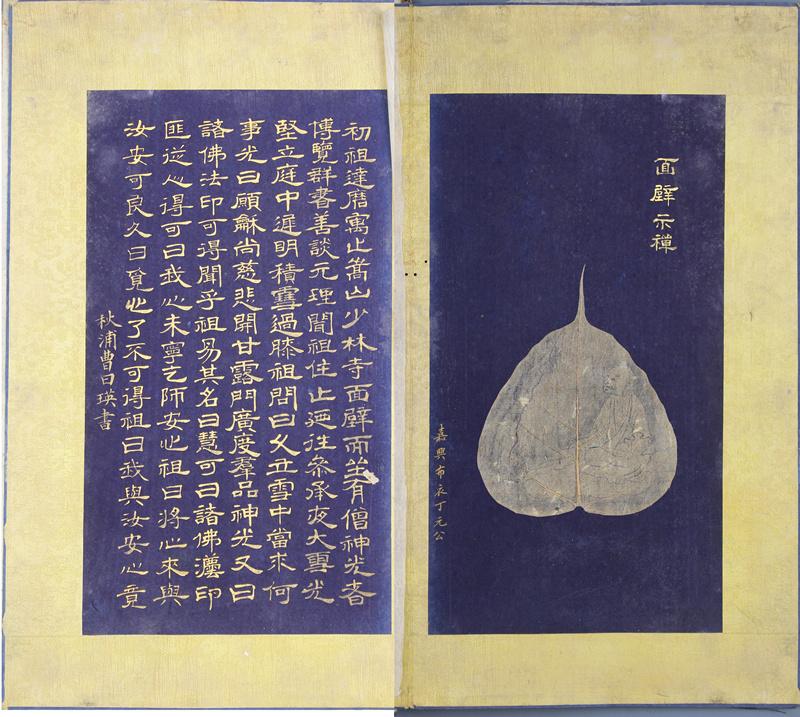 面壁示禪
嘉興布衣丁元公
初祖達磨寓止嵩山少林寺面壁而坐有僧神光者
博覽群書善談元理聞祖住止迺往參承夜大雪光
堅立庭中遲明積雪過膝祖問曰久立雪中當求何
事光曰願龢尚慈悲開甘露門廣度羣品神光又曰
諸佛法印可得聞乎祖易其名曰慧可曰諸佛灋印
匪從心得可曰我心未寧乞師安心祖曰將心來與
汝安可良久曰覓心了不可得祖曰我與汝安心竟
秋浦曹曰瑛書